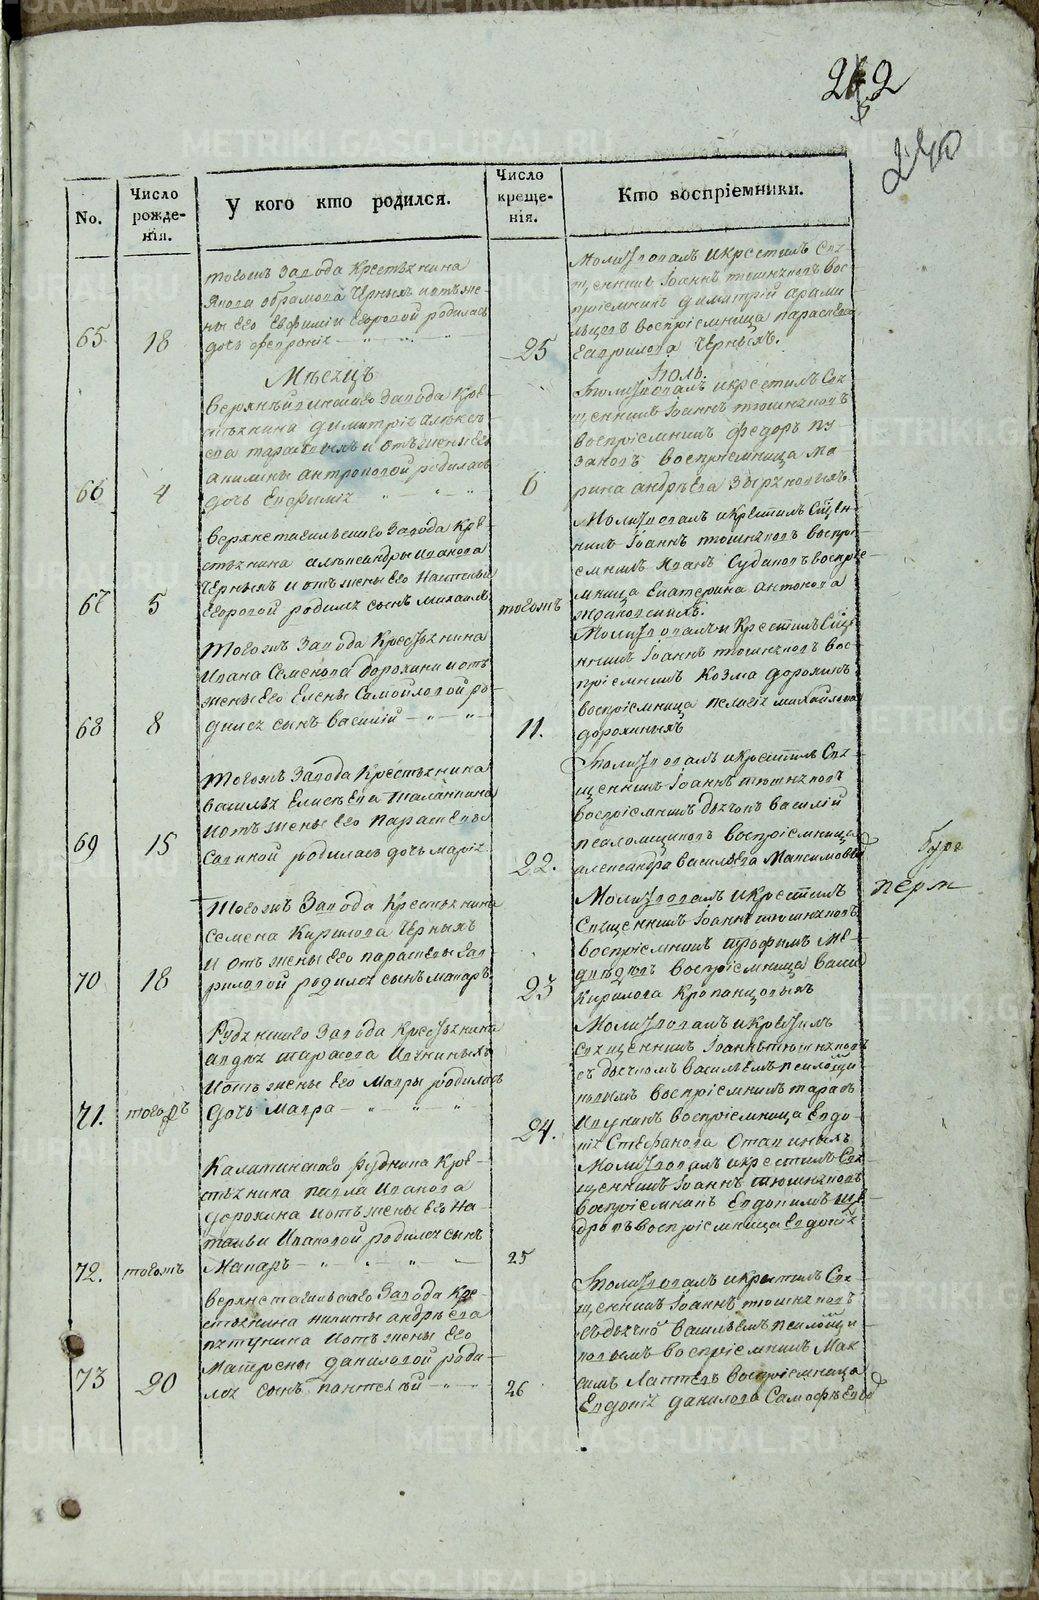 2 2
240
No.
Число
рожде-
нія.
У кого кто родился.
Число
креще-
нія.
Кто воспріемники.
тогожъ Завода Крестьянина
Якова Абрамова Черныхъ и отъ же-
ны его Евфиміи Егоровой родилась
65 18 дочь Февронія
25
Молитвовалъ и крестилъ Свя
щенникъ Іоаннъ тюшняковъ вос
пріемникъ Димитрій арами
льцевъ воспріемница параскева
Гаврилова Черныхъ.
Мѣсяцъ Іюль.
Верхнейвинскаго Завода Кре-
стьянина Димитрія алексѣ
ева и отъ жены его
акилины антроповой родилась
66 4 дочь Евфимія
6
Молитвовалъ и крестилъ Свя
щенникъ Іоаннъ тюшняковъ
воспріемникъ Федоръ пу-
зановъ воспріемница Ма-
рина андрѣева Звѣрховыхъ
Верхнетагильскаго Завода Кре-
стьянина александры Иванова
Черныхъ и отъ жены его Настасьи
67 5 Егоровой родился сынъ Михаилъ
тогожъ
Молитвовалъ и крестилъ Священ-
никъ Іоаннъ тюшняковъ воспрі-
емникъ Иванъ Судаковъ воспріе-
мница Екатерина антонова
Тогожъ Завода Крестьянина
Ивана Семенова Дорохина и отъ
жены его Елены Самойловой ро-
68 8 дился сынъ Василій
11.
Молитвовалъ и Крестилъ Свяще
нникъ Іоаннъ тюшняковъ вос-
пріемникъ Козма дорохинъ
воспріемница пелагія михайлова
дорохиныхъ
Тогожъ Завода Крестьянина
Василья Елисѣева Таланкина
и отъ жены его Параскевы
69 15 Савиной родилась дочь Марія
22.
Молитвовалъ и крестилъ Свя
щенникъ Іоаннъ тюшняковъ
воспріемникъ дьячокъ Василій
псаломщиковъ воспріемница
александра Васильева Максимовыхъ
Тогожъ Завода Крестьянина
Семена Кирилова Черныхъ
и отъ жены его параскевы Гав
70 18 риловой родился сынъ макаръ
23
Молитвовалъ и крестилъ
Священникъ Іоаннъ тюшняковъ
воспріемникъ трофимъ ме-
дведевъ воспріемница васса
Кирилова Кропанцовыхъ
перт
Рудянскаго Завода Крестьянина
авдея тарасова Ивкиныхъ
и отъ жены его Мавры родилась
71. тогожъ Дочь Мавра
24.
Молитвовалъ и крестилъ
Священникъ Іоаннъ тюшняковъ
съ дьячкомъ Васильемъ псаломщи
ковымъ воспріемникъ тарасъ
Ивкинъ воспріемница Евдо-
кія Стефанова
Калатинскаго рудника Кре-
стьянина павла Иванова
дорохина и отъ жены его На-
тальи Ивановой родился сынъ
72. тогожъ Макаръ
25
Молитвовалъ и крестилъ Свя-
щенникъ Іоаннъ тюшняковъ
воспріемникъ Евдокимъ ще-
дровъ воспріемница Евдокія
Верхнетагильскаго Завода Кре-
стьянина никиты андрѣева
пятунина и отъ жены его
Матроны даниловой роди-
73 20 лся сынъ пантелѣй
26
Молитвовалъ и крестилъ Свя-
щенникъ Іоаннъ тюшняковъ
съ дьячко Васильемъ псаломщи
ковымъ воспріемникъ Мак
симъ Лаптевъ воспріемница
Евдокія данилова Самофѣевыхъ
METRIKI.GASO-URAL.RU